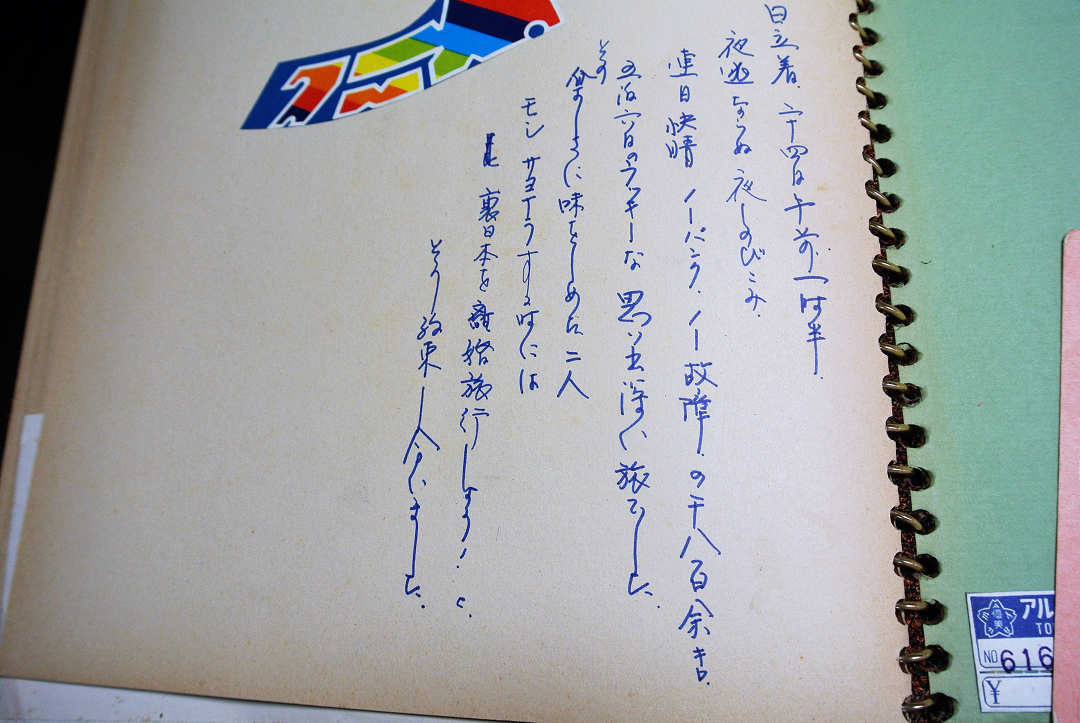 日立着、二十四日午前一时半.
夜逃ならぬ夜しのびこみ.
連日快晴 ノーパンク、ノー故障、の千八百余キロ.
五泊六日のラッキーな思い出深い旅でした.
その楽しさに味をしめた二人
モシサヨナラする时には
裏日本を離婚旅行しましょう!と.
そう約束し合いました.
アル
TO
NO 616
¥